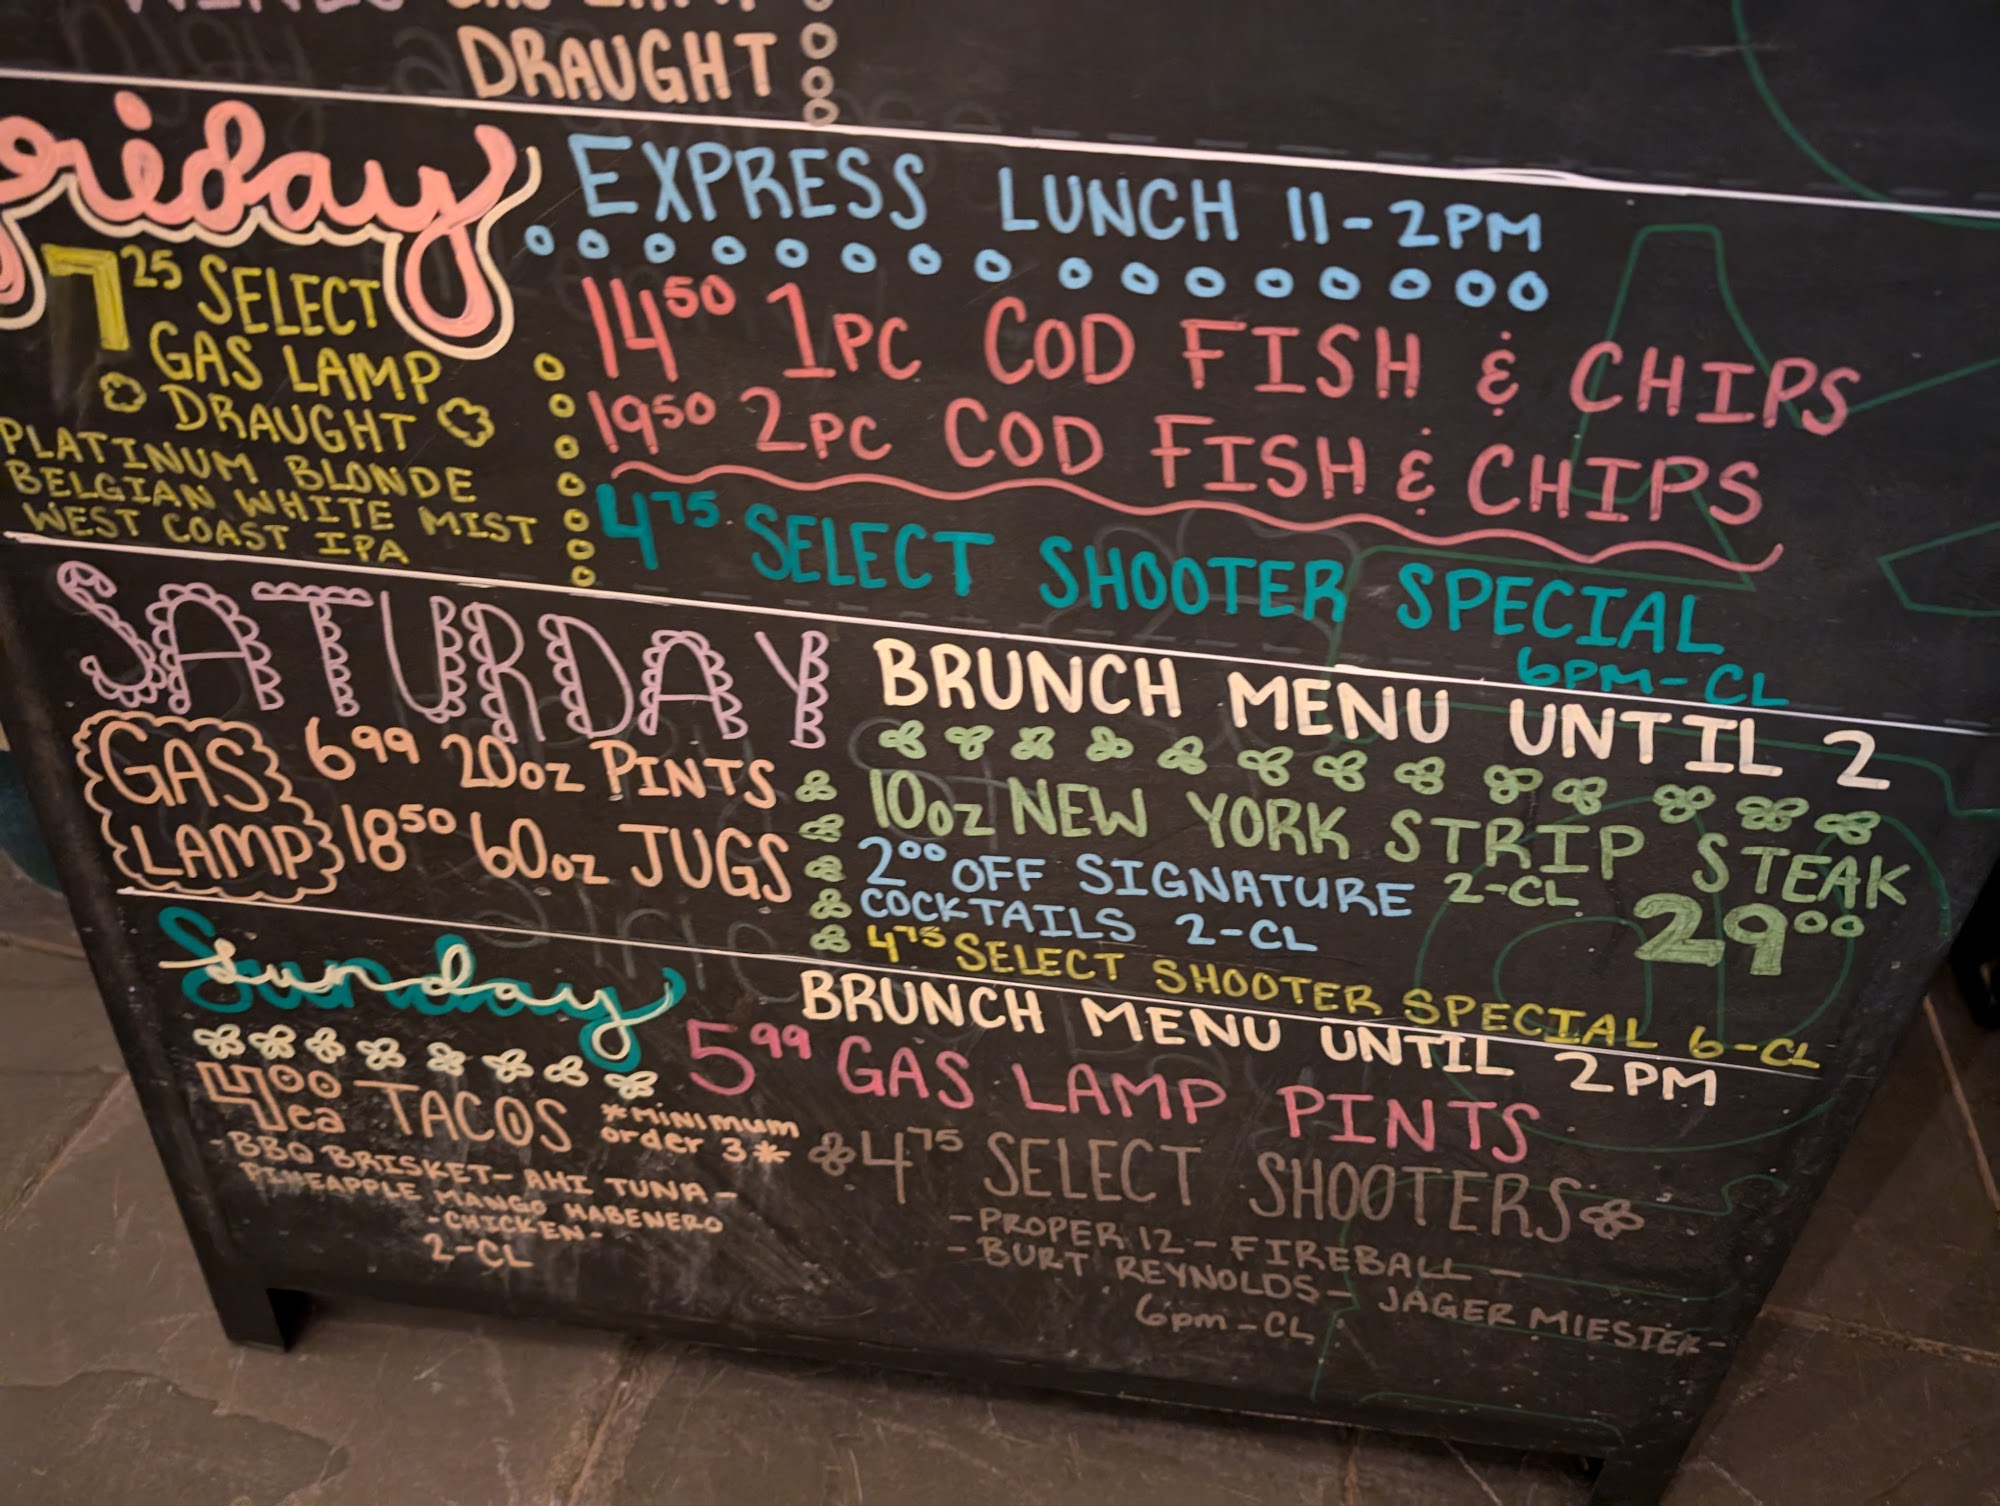 DRAUGHT
Friday
7.25 SELECT
GAS LAMP
DRAUGHT
PLATINUM BLONDE
BELGIAN WHITE MIST
WEST COAST IPA
EXPRESS LUNCH 11-2PM
14.50 1PC COD FISH & CHIPS
19.50 2PC COD FISH & CHIPS
4.75 SELECT SHOOTER SPECIAL
6PM-CL
SATURDAY
GAS
LAMP
6.99 20oz PINTS
18.50 60oz JUGS
BRUNCH MENU UNTIL 2
10oz NEW YORK STRIP STEAK
2-CL 29.00
2.00 OFF SIGNATURE
COCKTAILS 2-CL
4.75 SELECT SHOOTER SPECIAL 6-CL
Sunday
4.00 ea TACOS *MINIMUM
order 3*
-BBQ BRISKET-AHI TUNA-
PINEAPPLE MANGO HABENERO
-CHICKEN-
2-CL
BRUNCH MENU UNTIL 2PM
5.99 GAS LAMP PINTS
4.75 SELECT SHOOTERS
-PROPER 12-FIREBALL-
-BURT REYNOLDS-JAGER MIESTER-
6pm-CL